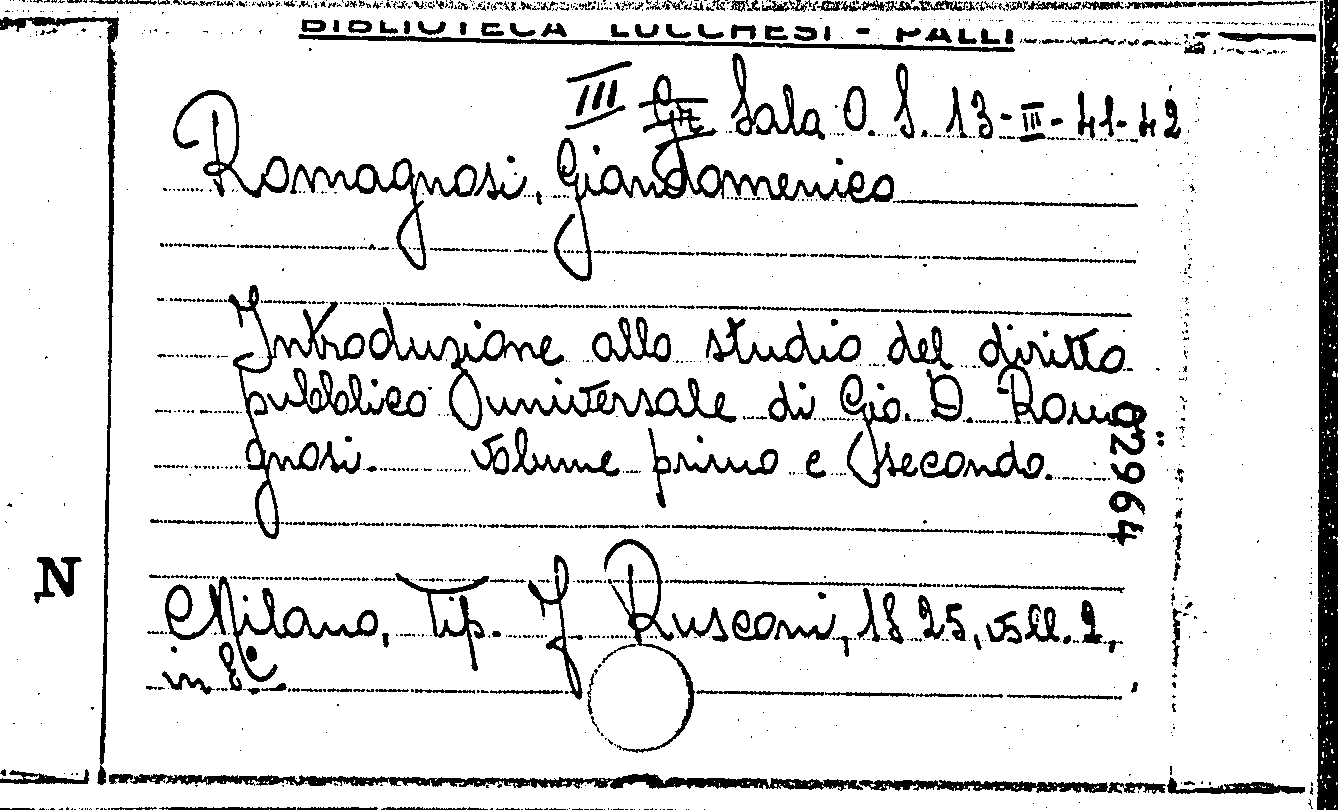 BIBLIOTECA LUCCHESI - PALLI
III Sala O. S. 13-III-41-42
Romagnosi, Giandomenico
Introduzione allo studio del diritto
pubblico universale di Gio. D. Roma
gnosi. Volume primo e secondo.
02964
N
Milano, Tip. J Rusconi, 1825, voll. 2,
in 8°